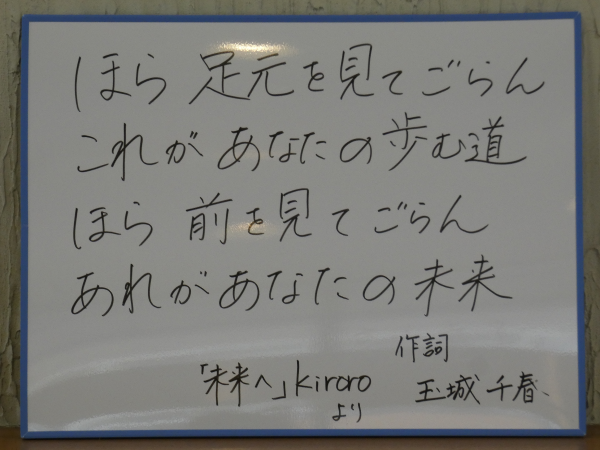 ほら 足元を見てごらん
これが あなたの歩む道
ほら 前を見てごらん
あれがあなたの未来
「未来へ」kiroro
より
作詞
玉城 千春